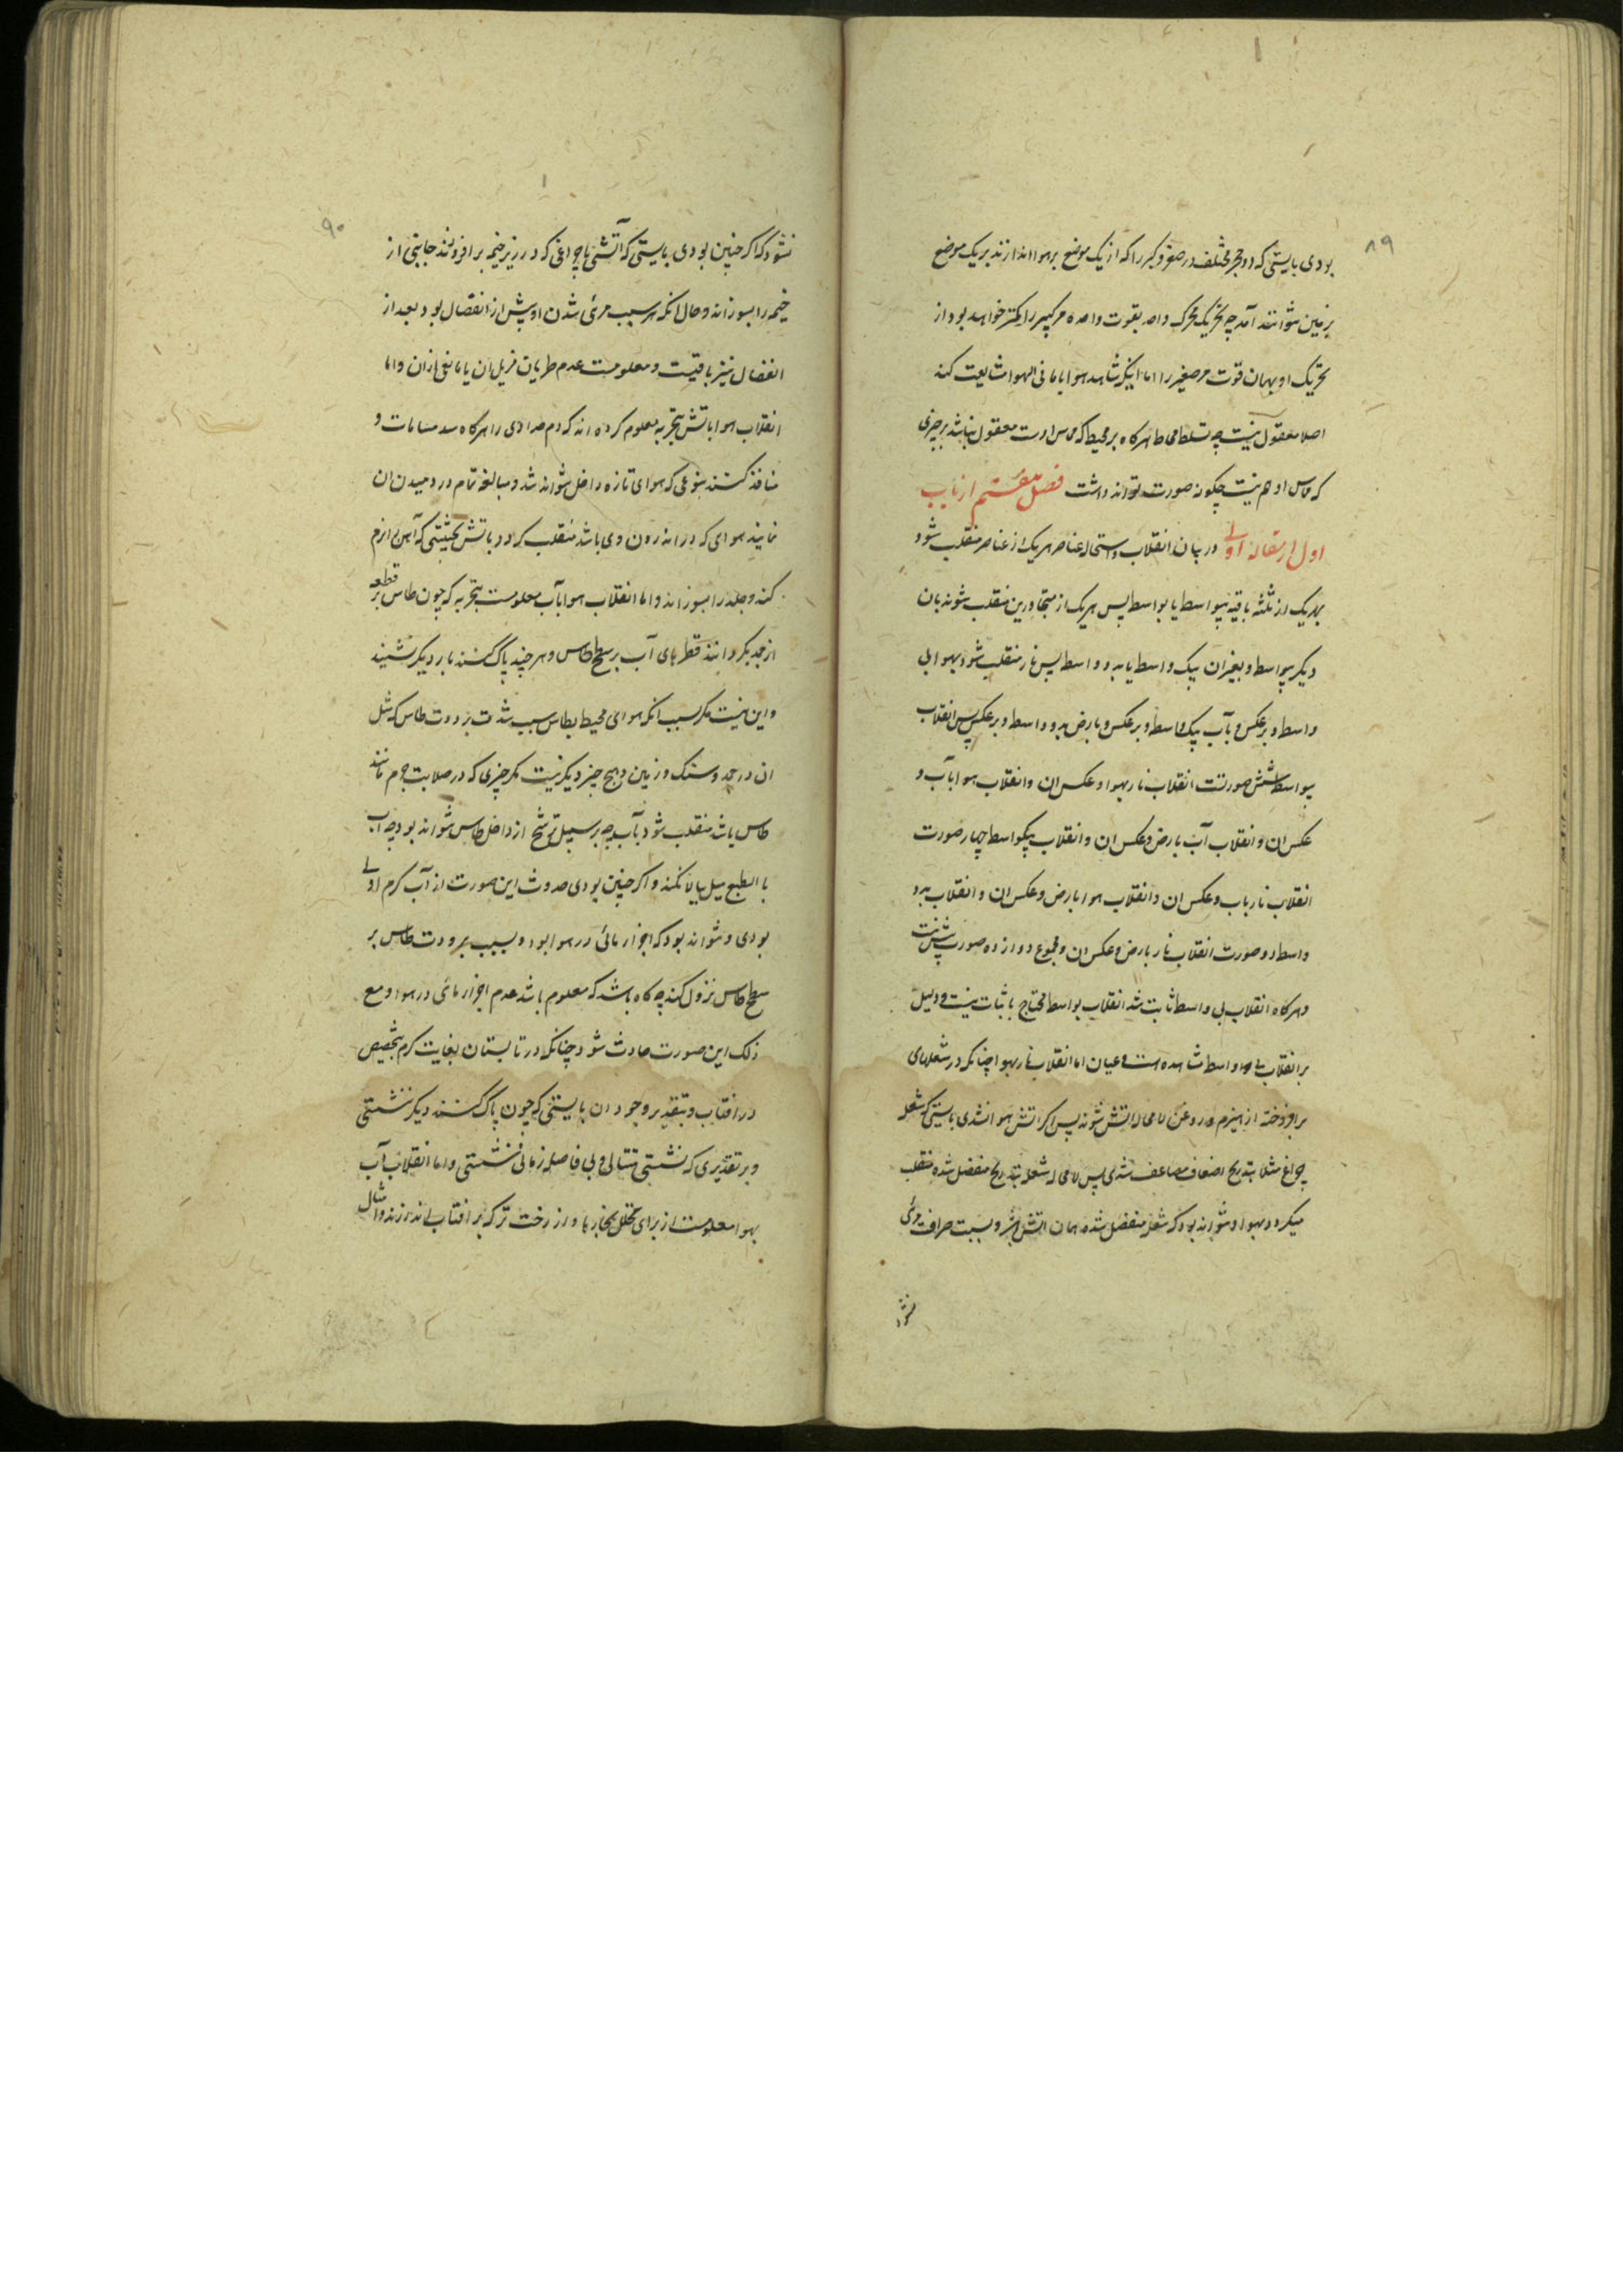 ۸۹
بودی بایستی که دو حجر مختلف در صغر و کبر را که از یک موضع بر هوا اندازند بر یک موضع
بزمین نتوانند آمد چه تحریک محرک واحد بقوت واحده مر کبیر را کمتر خواهد بود از
تحریک او بهمان قوت مر صغیر را اما اینکه مشاهد هوا با ما فی الهوا مشایعت کند
اصلا معقول نیست چه تسلط محاط هرگاه بر محیط که مماس اوست معقول نباشد بر چیزی
که مماس او هم نیست چگونه صورت تواند داشت فصل هفتم از باب
اول از مقاله اولی در بیان انقلاب و استحاله عناصر هر یک از عناصر منقلب شود
بهر یک از ثلثه باقیه بیواسطه یا بواسطه پس هر یک از متجاورین منقلب شوند بان
دیگر بیواسطه و بغیر ان بیک واسطه یا بدو واسطه پس نار منقلب شود بهوا بی
واسطه و بر عکس و بآب بیک واسطه و بر عکس و بارض بدو واسطه و بر عکس پس انقلاب
بیواسطه شش صورتست انقلاب نار بهوا و عکس ان و انقلاب هوا بآب و
عکس ان و انقلاب آب بارض و عکس ان و انقلاب بیکواسطه چهار صورت
انقلاب نار باب و عکس ان و انقلاب هوا بارض و عکس ان و انقلاب بدو
واسطه دو صورت انقلاب نار بارض و عکس ان و مجموع دوازده صورت
و هرگاه انقلاب بی واسطه ثابت شد انقلاب بواسطه محتاج باثبات نیست و دلیل
بر انقلاب واسطه مشاهده است و عیان اما انقلاب نار بهوا چنانکه در شعلهای
بر افروخته از هیزم و روغن لا محاله اتش شوند پس اگر اتش هوا نشدی بایستی که شعله
چراغ مثلا بتدریج اضعاف مضاعف شدی پس لا محاله شعله بتدریج منفصل شده منقلب
میگردد بهوا و نتواند بود که شعله منفصل شده همان اتش باشد و بسبب صرافت مرئی
نشود
۹۰
نشود که اگر چنین بودی بایستی که آتشی یا چراغی که در زیر خیمه بر افروزند جانبی از
خیمه را بسوزاند و حال آنکه سبب مرئی شدن او پیش از انفصال بود بعد از
انفصال نیز باقیست و معلومست عدم طریان مزیل ان یا مانعی از ان واما
انقلاب هوا باتش بتجربه معلوم کرده اند که دم حدادی را هرگاه سد مسامات و
منافذ کنند بنوعی که هوای تازه داخل نتواند شد و مبالغه تمام در دمیدن ان
نمایند هوای که در اندرون وی باشد منقلب گردد باتش بحیثیتی که آهن را نرم
کند و جلد را بسوزاند و اما انقلاب هوا بآب معلومست بتجربه که چون طاس بر قطعه
از جمد بگردانند قطرهای آب بر سطح طاس و هر چند پاک کنند بار دیگر نشیند
و این نیست مگر بسبب انکه هوای محیط بطاس بسبب شدت برودت طاس که مثل
ان در جمد و سنگ و زمین و هیچ چیز دیگر نیست مگر چیزی که در صلابت جرم مانند
طاس باشد منقلب شود بآب چه بر سبیل ترشح از داخل طاس نتواند بود چه آب
بالطبع میل ببالا نکند و اگر چنین بودی حدوث این صورت از آب گرم اولی
بودی و نتواند بود که اجزاء مائی در هوا بود و بسبب برودت طاس بر
سطح طاس نزول کند چه گاه باشد که معلوم باشد عدم اجزاء مائی در هوا و مع
ذلک این صورت حادث شود چنانکه در تابستان بغایت گرم بتخصیص
در افتاب و بتقدیر وجود ان بایستی که چون پاک کنند دیگر ننشستی
و بر تقدیری که نشستی متتالی و بی فاصله زمانی ننشستی و اما انقلاب آب
بهوا معلومست از برای تحلل بخارها و از رخت تر که بر افتاب اندازند و امثال